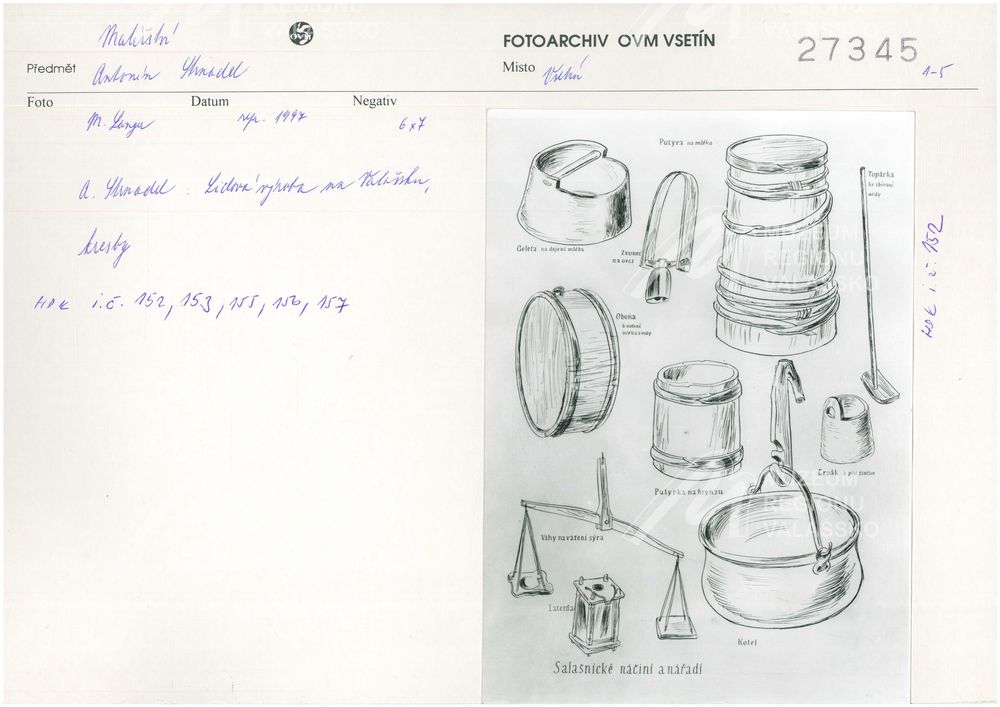 Malířství
FOTOARCHIV OVM VSETÍN
27345
1-5
Předmět Antonín Strnadel
Místo Vsetín
Foto Datum Negativ
M. Langer rep. 1997 6x7
A. Strnadel: Lidová výroba na Valašsku,
kresby
HDK i.č. 152, 153, 155, 156, 157
HDK i.č. 152
Putyra na mléko
Geleta na dojení mléka
Zvonec
na ovce
Topárka
ke sbírání
vody
Oboňa
k nošení
mléka a vody
Črpák k pití žinčice
Putyrka na brynzu
Váhy na vážení sýra
Laterňa
Kotel
Salašnické náčiní a nářadí
MUZEUM
REGIONU
VALAŠSKO
MUZEUM
REGIONU
VALAŠSKO